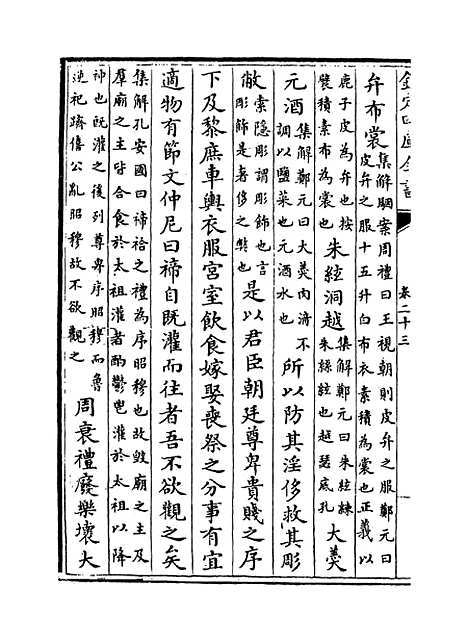 欽定四庫全書
卷二十三
弁布裳
集解駰案周禮曰王視朝則皮弁之服鄭元曰
皮弁之服十五升白布衣素積為裳也正義以
鹿子皮為弁也按
襞積素布為裳也
朱絃洞越
集解鄭元曰朱絃練
朱絲絃也越瑟底孔
大羹
元酒
集解鄭元曰大羹肉湇不
調以鹽菜也元酒水也
所以防其淫侈救其彫
敝
索隱彫謂彫飾也言
彫飾是奢侈之獘也
是以君臣朝廷尊卑貴賤之序
下及黎庶車輿衣服宮室飲食嫁娶喪祭之分事有宜
適物有節文仲尼曰禘自既灌而往者吾不欲觀之矣
集解孔安國曰禘祫之禮為序昭穆也故毀廟之主及
羣廟之主皆合食於太祖灌者酌鬱鬯灌於太祖以降
神也既灌之後列尊卑序昭穆而魯
逆祀躋僖公亂昭穆故不欲觀之
周衰禮廢樂壞大